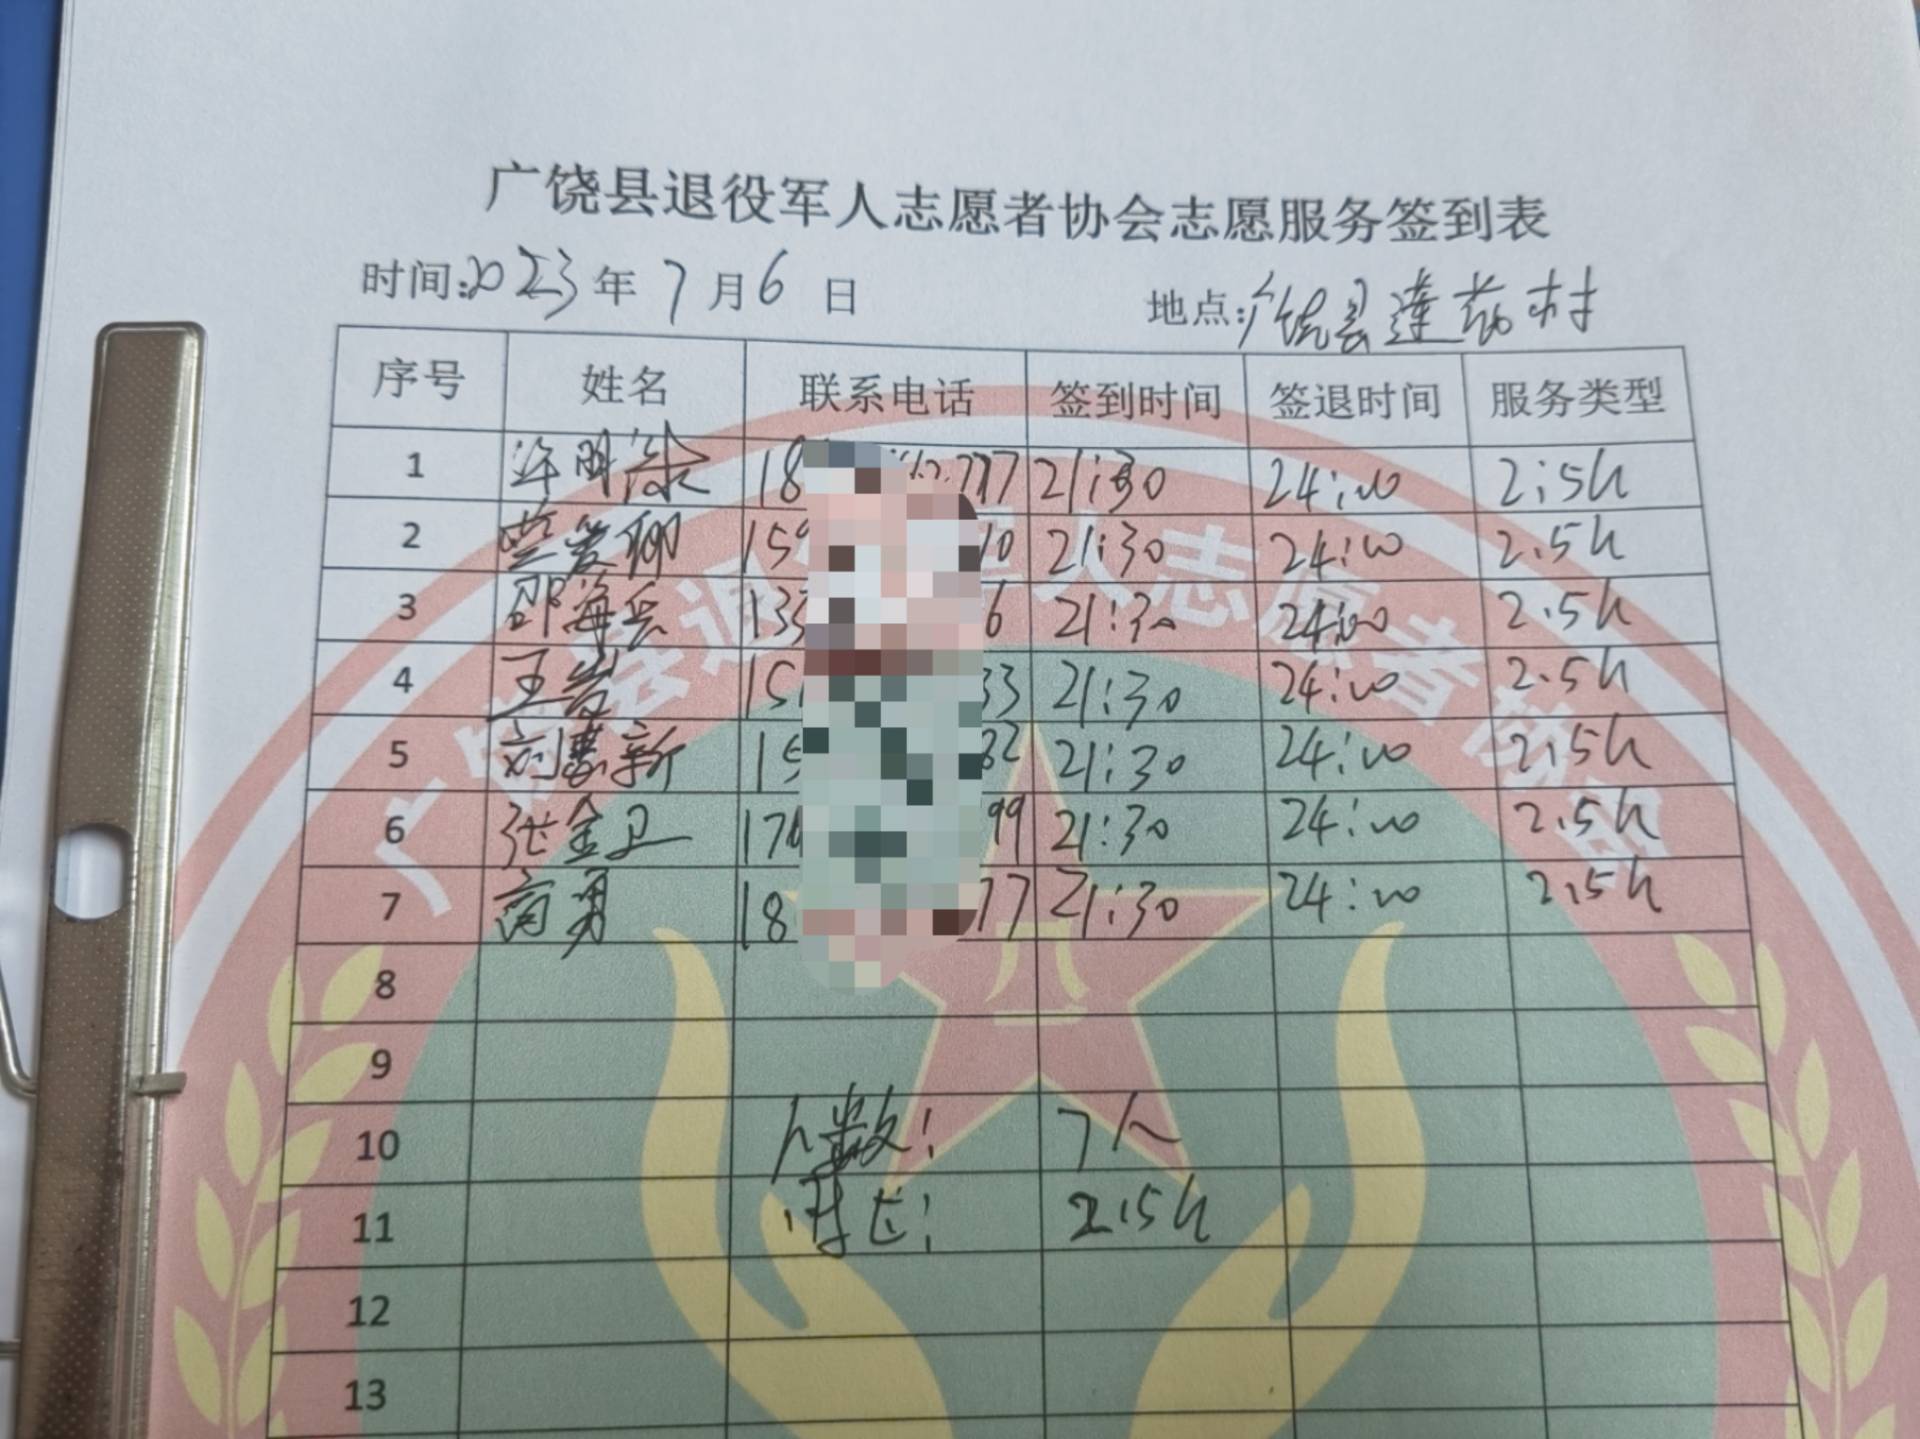 广饶县退役军人志愿者协会志愿服务签到表
时间:2023年7月6日 地点:广饶县莲花村
序号 姓名 联系电话 签到时间 签退时间 服务类型
1 许明 18 777 21:30 24:00 2:5h
2 159 10 21:30 24:00 2.5h
3 邵海兵 133 6 21:30 24:00 2.5h
4 王 15 33 21:30 24:00 2.5h
5 刘慧新 15 82 21:30 24:00 2.5h
6 张金卫 176 99 21:30 24:00 2.5h
7 勇 18 77 21:30 24:00 2.5h
8
9
10 人数: 7人
11 时长: 2.5h
12
13